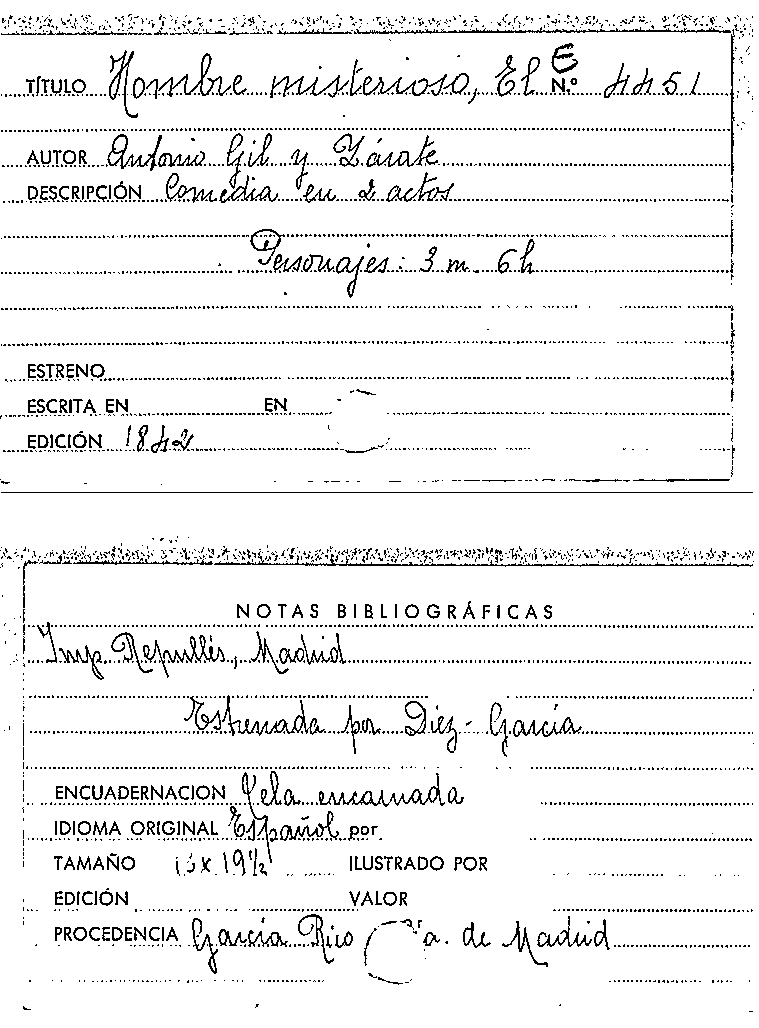 TÍTULO Hombre misterioso, El E N.º 4451
AUTOR Antonio Gil y Zárate
DESCRIPCIÓN Comedia en 2 actos
Personajes: 3 m. 6 h
ESTRENO
ESCRITA EN EN
EDICIÓN 1842
NOTAS BIBLIOGRÁFICAS
Imp. Repullés, Madrid
Estrenada por Diez-García
ENCUADERNACION Tela encarnada
IDIOMA ORIGINAL Español por
TAMAÑO 13 x 19½ ILUSTRADO POR
EDICIÓN VALOR
PROCEDENCIA García Rico a. de Madrid